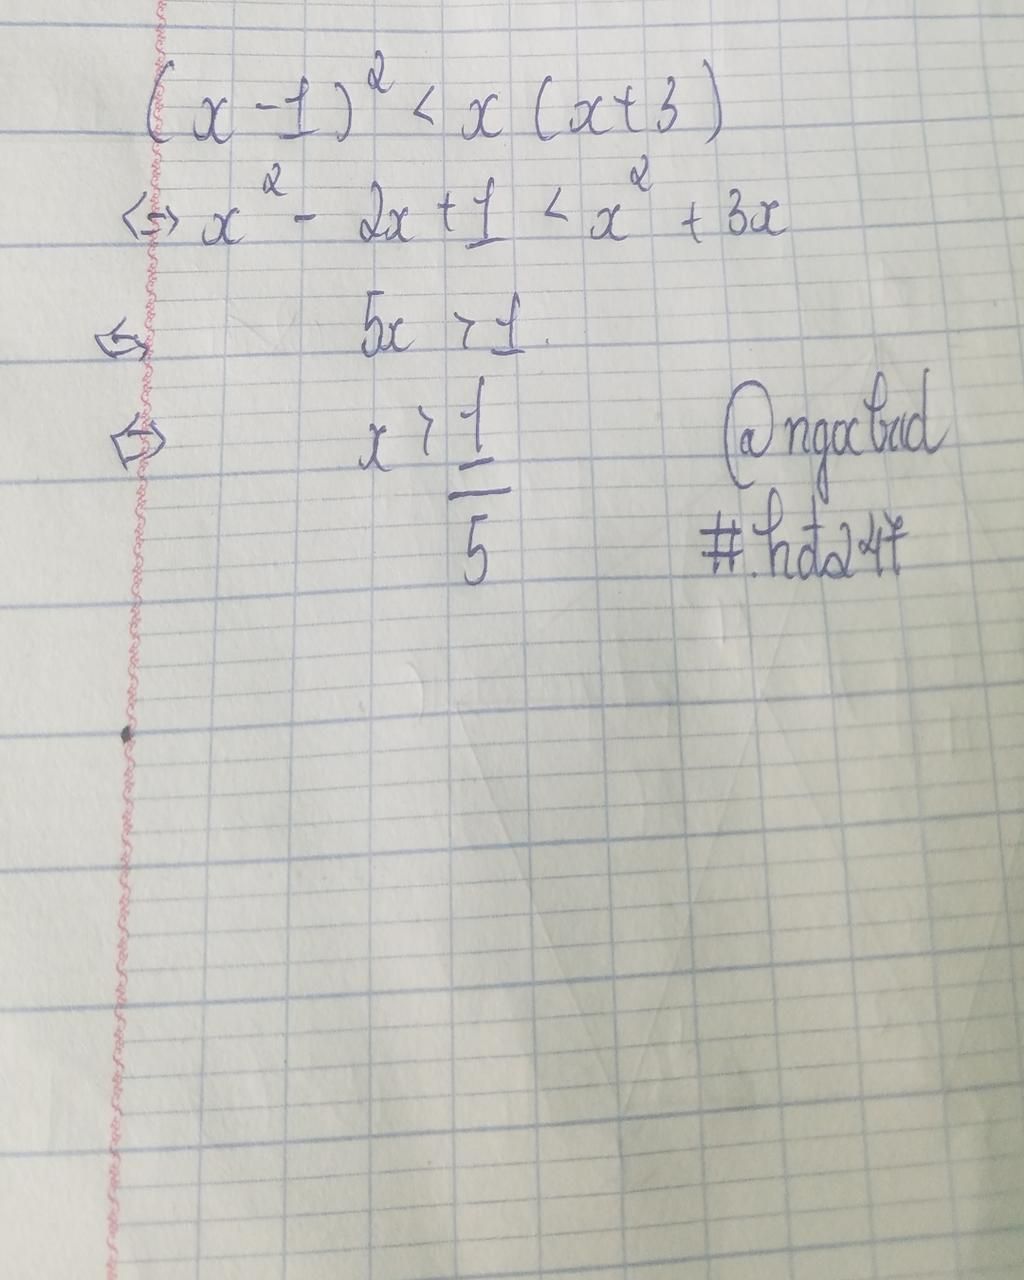 (x-1)² < x(x+3)
⇔ x² - 2x + 1 < x² + 3x
⇔ 5x > 1
⇔ x > 1/5
@ngocbud
#.hd247